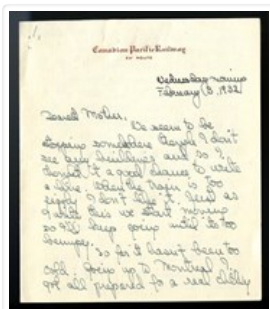 Canadian Pacific Railway
EN ROUTE
Wednesday morning
February 3, 1932
Dearest Mother,
We seem to be
stopping somewhere though I don't
see any buildings and so I
thought it a good chance to write
a line. When the train is too
I don't like it. Just as
I write this we start moving
so I'll keep going until it's too
bumpy.
So far it hasn't been too
cold. Going up to Montreal I
got all prepared for a real chilly